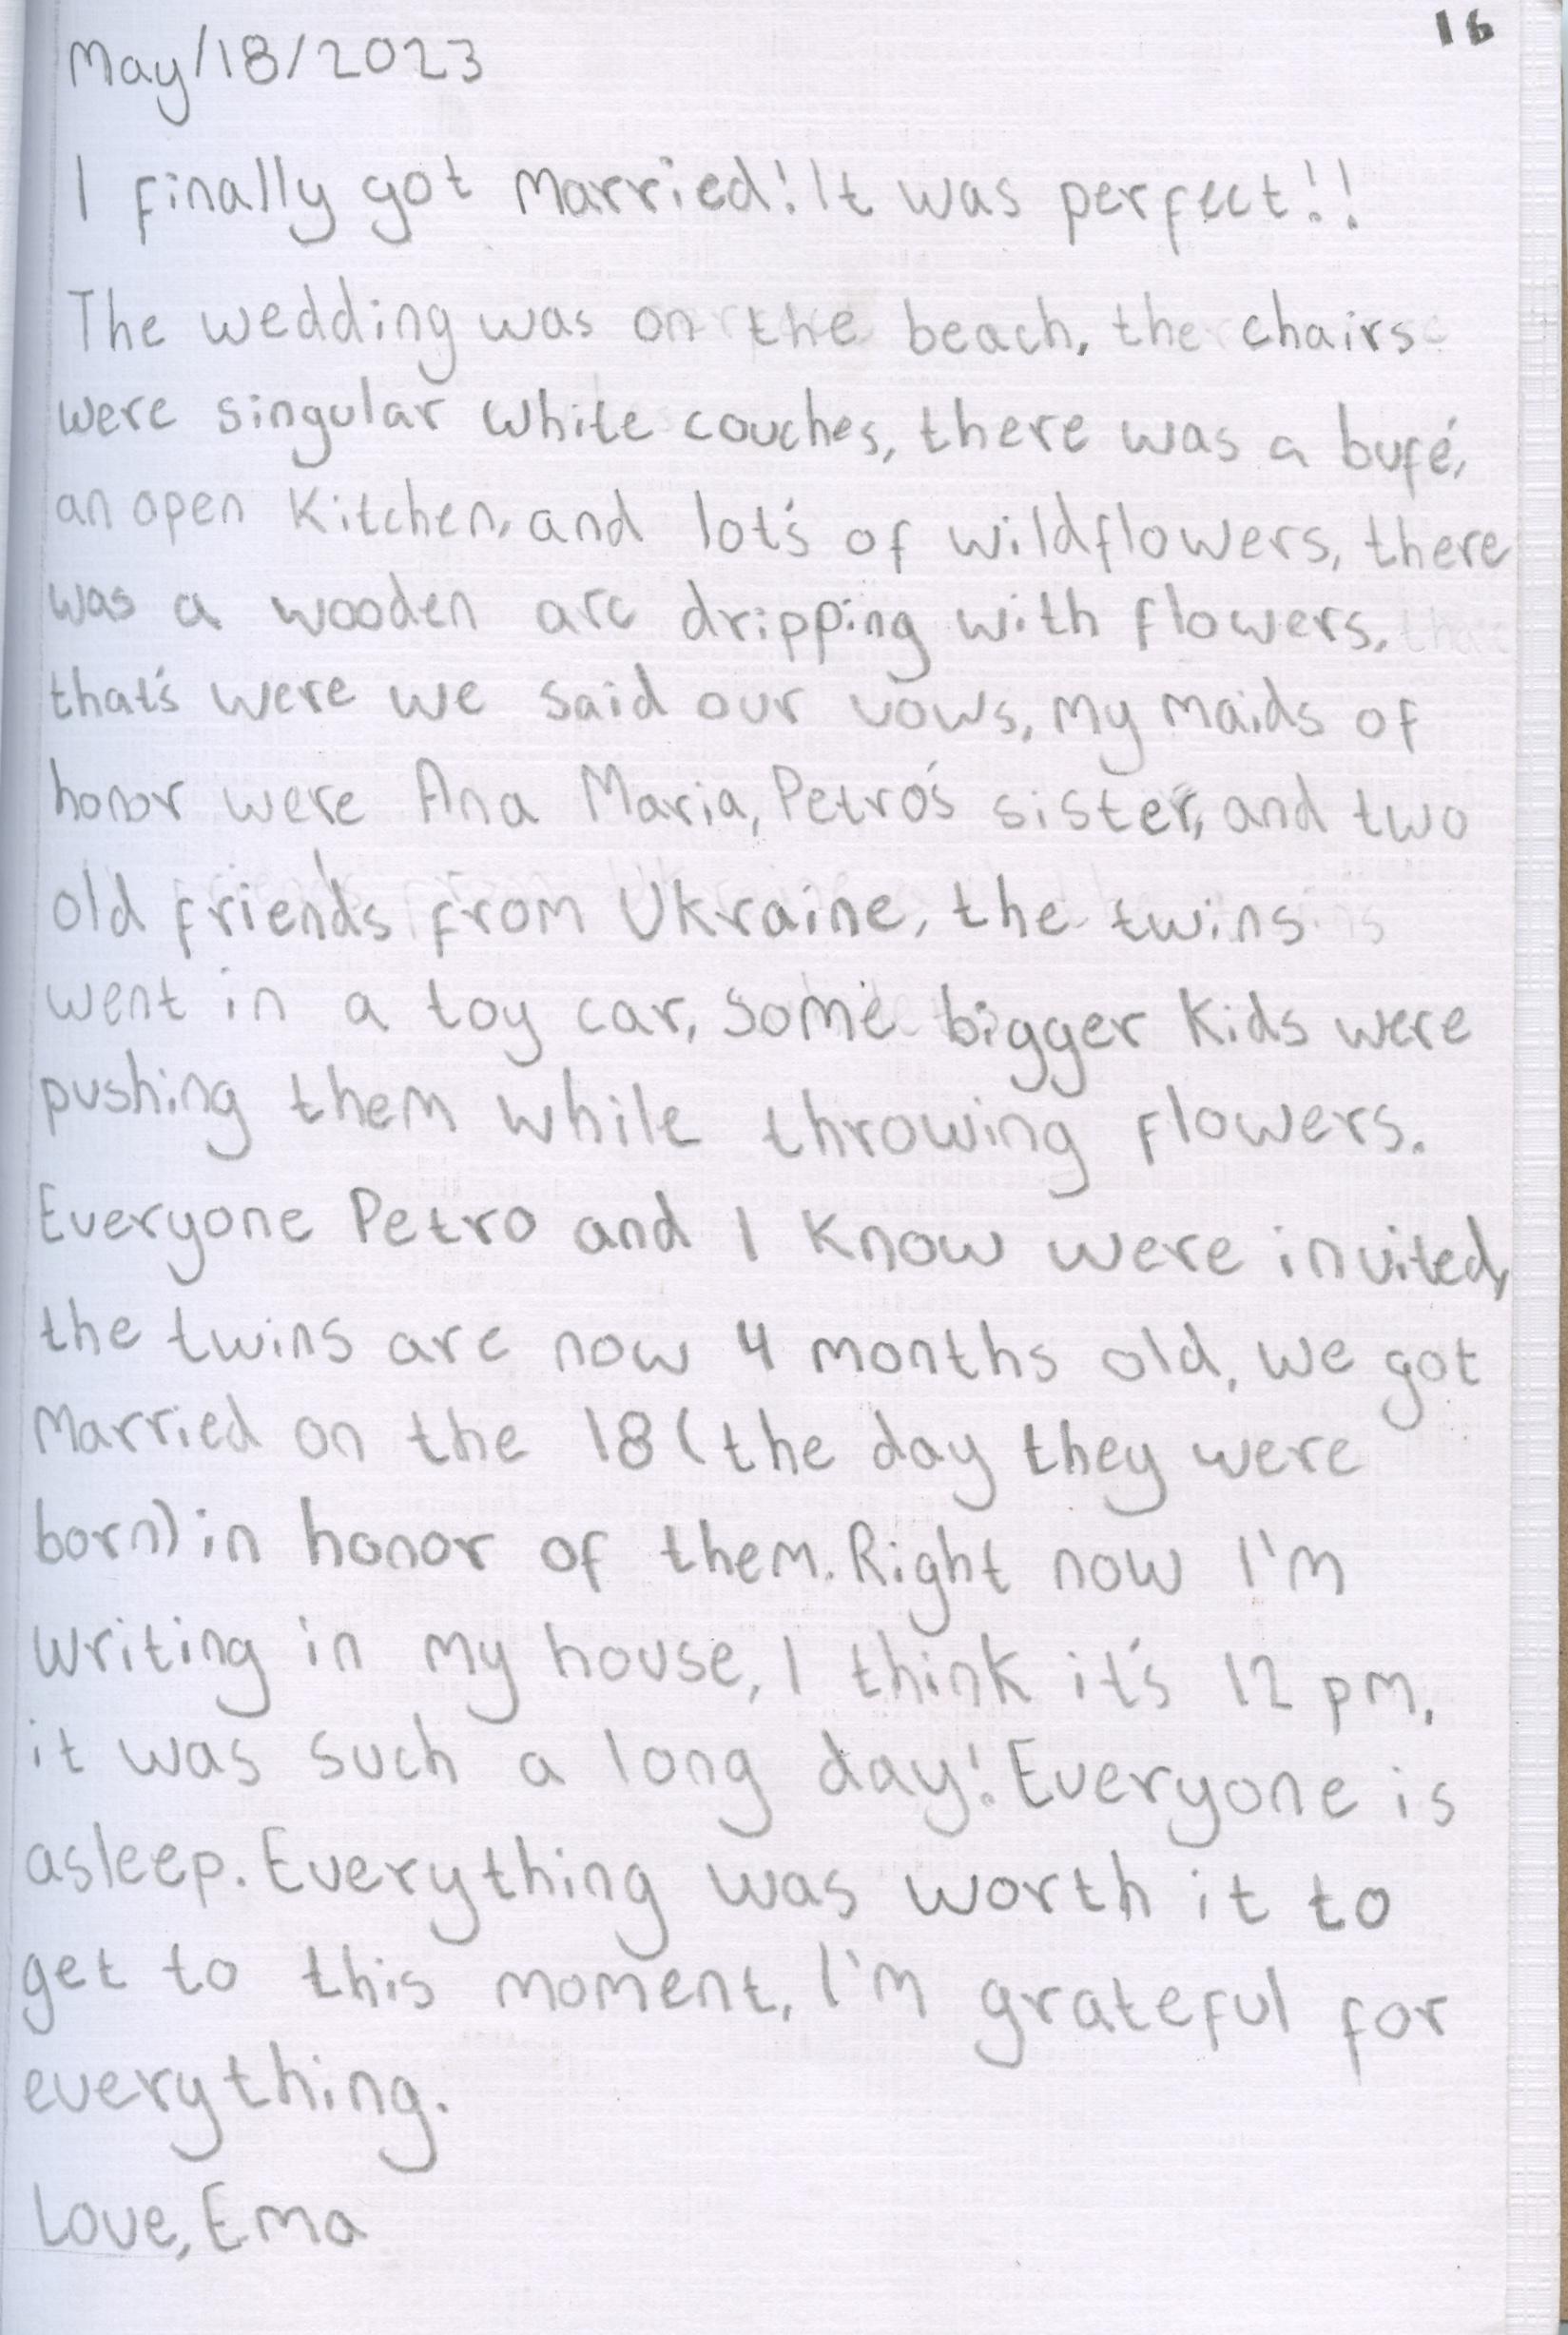 16
May/18/2023
I finally got married! It was perfect!!
The wedding was on the beach, the chairs
were singular white couches, there was a bufé,
an open kitchen, and lot's of wildflowers, there
was a wooden arc dripping with flowers,
that's were we said our vows, my maids of
honor were Ana Maria, Petro's sister, and two
old friends from Ukraine, the twins
went in a toy car, some bigger kids were
pushing them while throwing flowers.
Everyone Petro and I know were invited,
the twins are now 4 months old, we got
married on the 18 (the day they were
born) in honor of them. Right now I'm
writing in my house, I think it's 12 pm,
it was such a long day! Everyone is
asleep. Everything was worth it to
get to this moment, I'm grateful for
everything.
Love, Ema